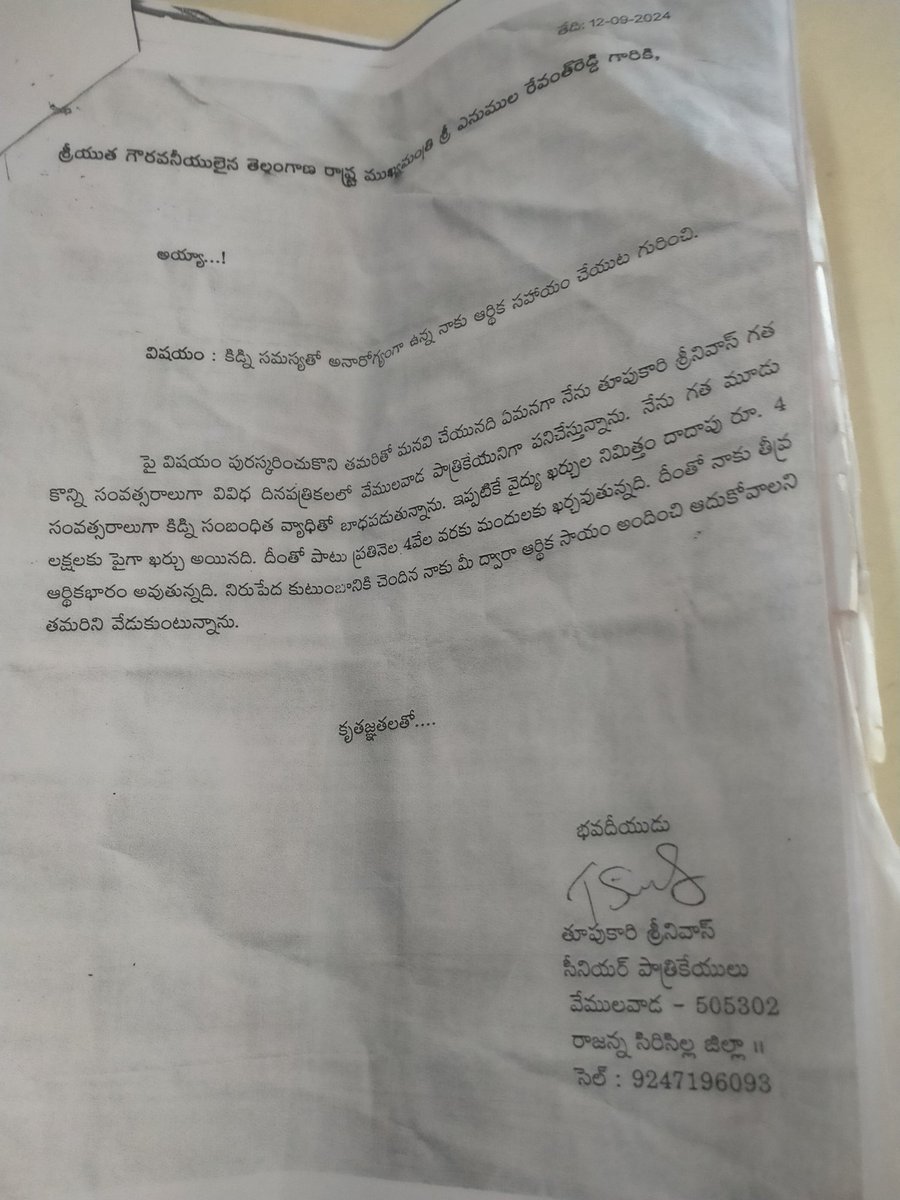 తేది: 12-09-2024
శ్రీయుత గౌరవనీయులైన తెలంగాణ రాష్ట్ర ముఖ్యమంత్రి శ్రీ ఎనుముల రేవంత్‌రెడ్డి గారికి,
అయ్యా...!
విషయం : కిడ్ని సమస్యతో అనారోగ్యంగా ఉన్న నాకు ఆర్థిక సహాయం చేయుట గురించి.
పై విషయం పురస్కరించుకొని తమరితో మనవి చేయునది ఏమనగా నేను తూపుకారి శ్రీనివాస్ గత
కొన్ని సంవత్సరాలుగా వివిధ దినపత్రికలలో వేములవాడ పాత్రికేయునిగా పనిచేస్తున్నాను. నేను గత మూడు
సంవత్సరాలుగా కిడ్ని సంబంధిత వ్యాధితో బాధపడుతున్నాను. ఇప్పటికే వైద్యు ఖర్చుల నిమిత్తం దాదాపు రూ. 4
లక్షలకు పైగా ఖర్చు అయినది. దీంతో పాటు ప్రతినెల 4వేల వరకు మందులకు ఖర్చవుతున్నది. దీంతో నాకు తీవ్ర
ఆర్థికభారం అవుతున్నది. నిరుపేద కుటుంబానికి చెందిన నాకు మీ ద్వారా ఆర్థిక సాయం అందించి ఆదుకోవాలని
తమరిని వేడుకుంటున్నాను.
కృతజ్ఞతలతో....
భవదీయుడు
తూపుకారి శ్రీనివాస్
సీనియర్ పాత్రికేయులు
వేములవాడ - 505302
రాజన్న సిరిసిల్ల జిల్లా ॥
సెల్ : 9247196093